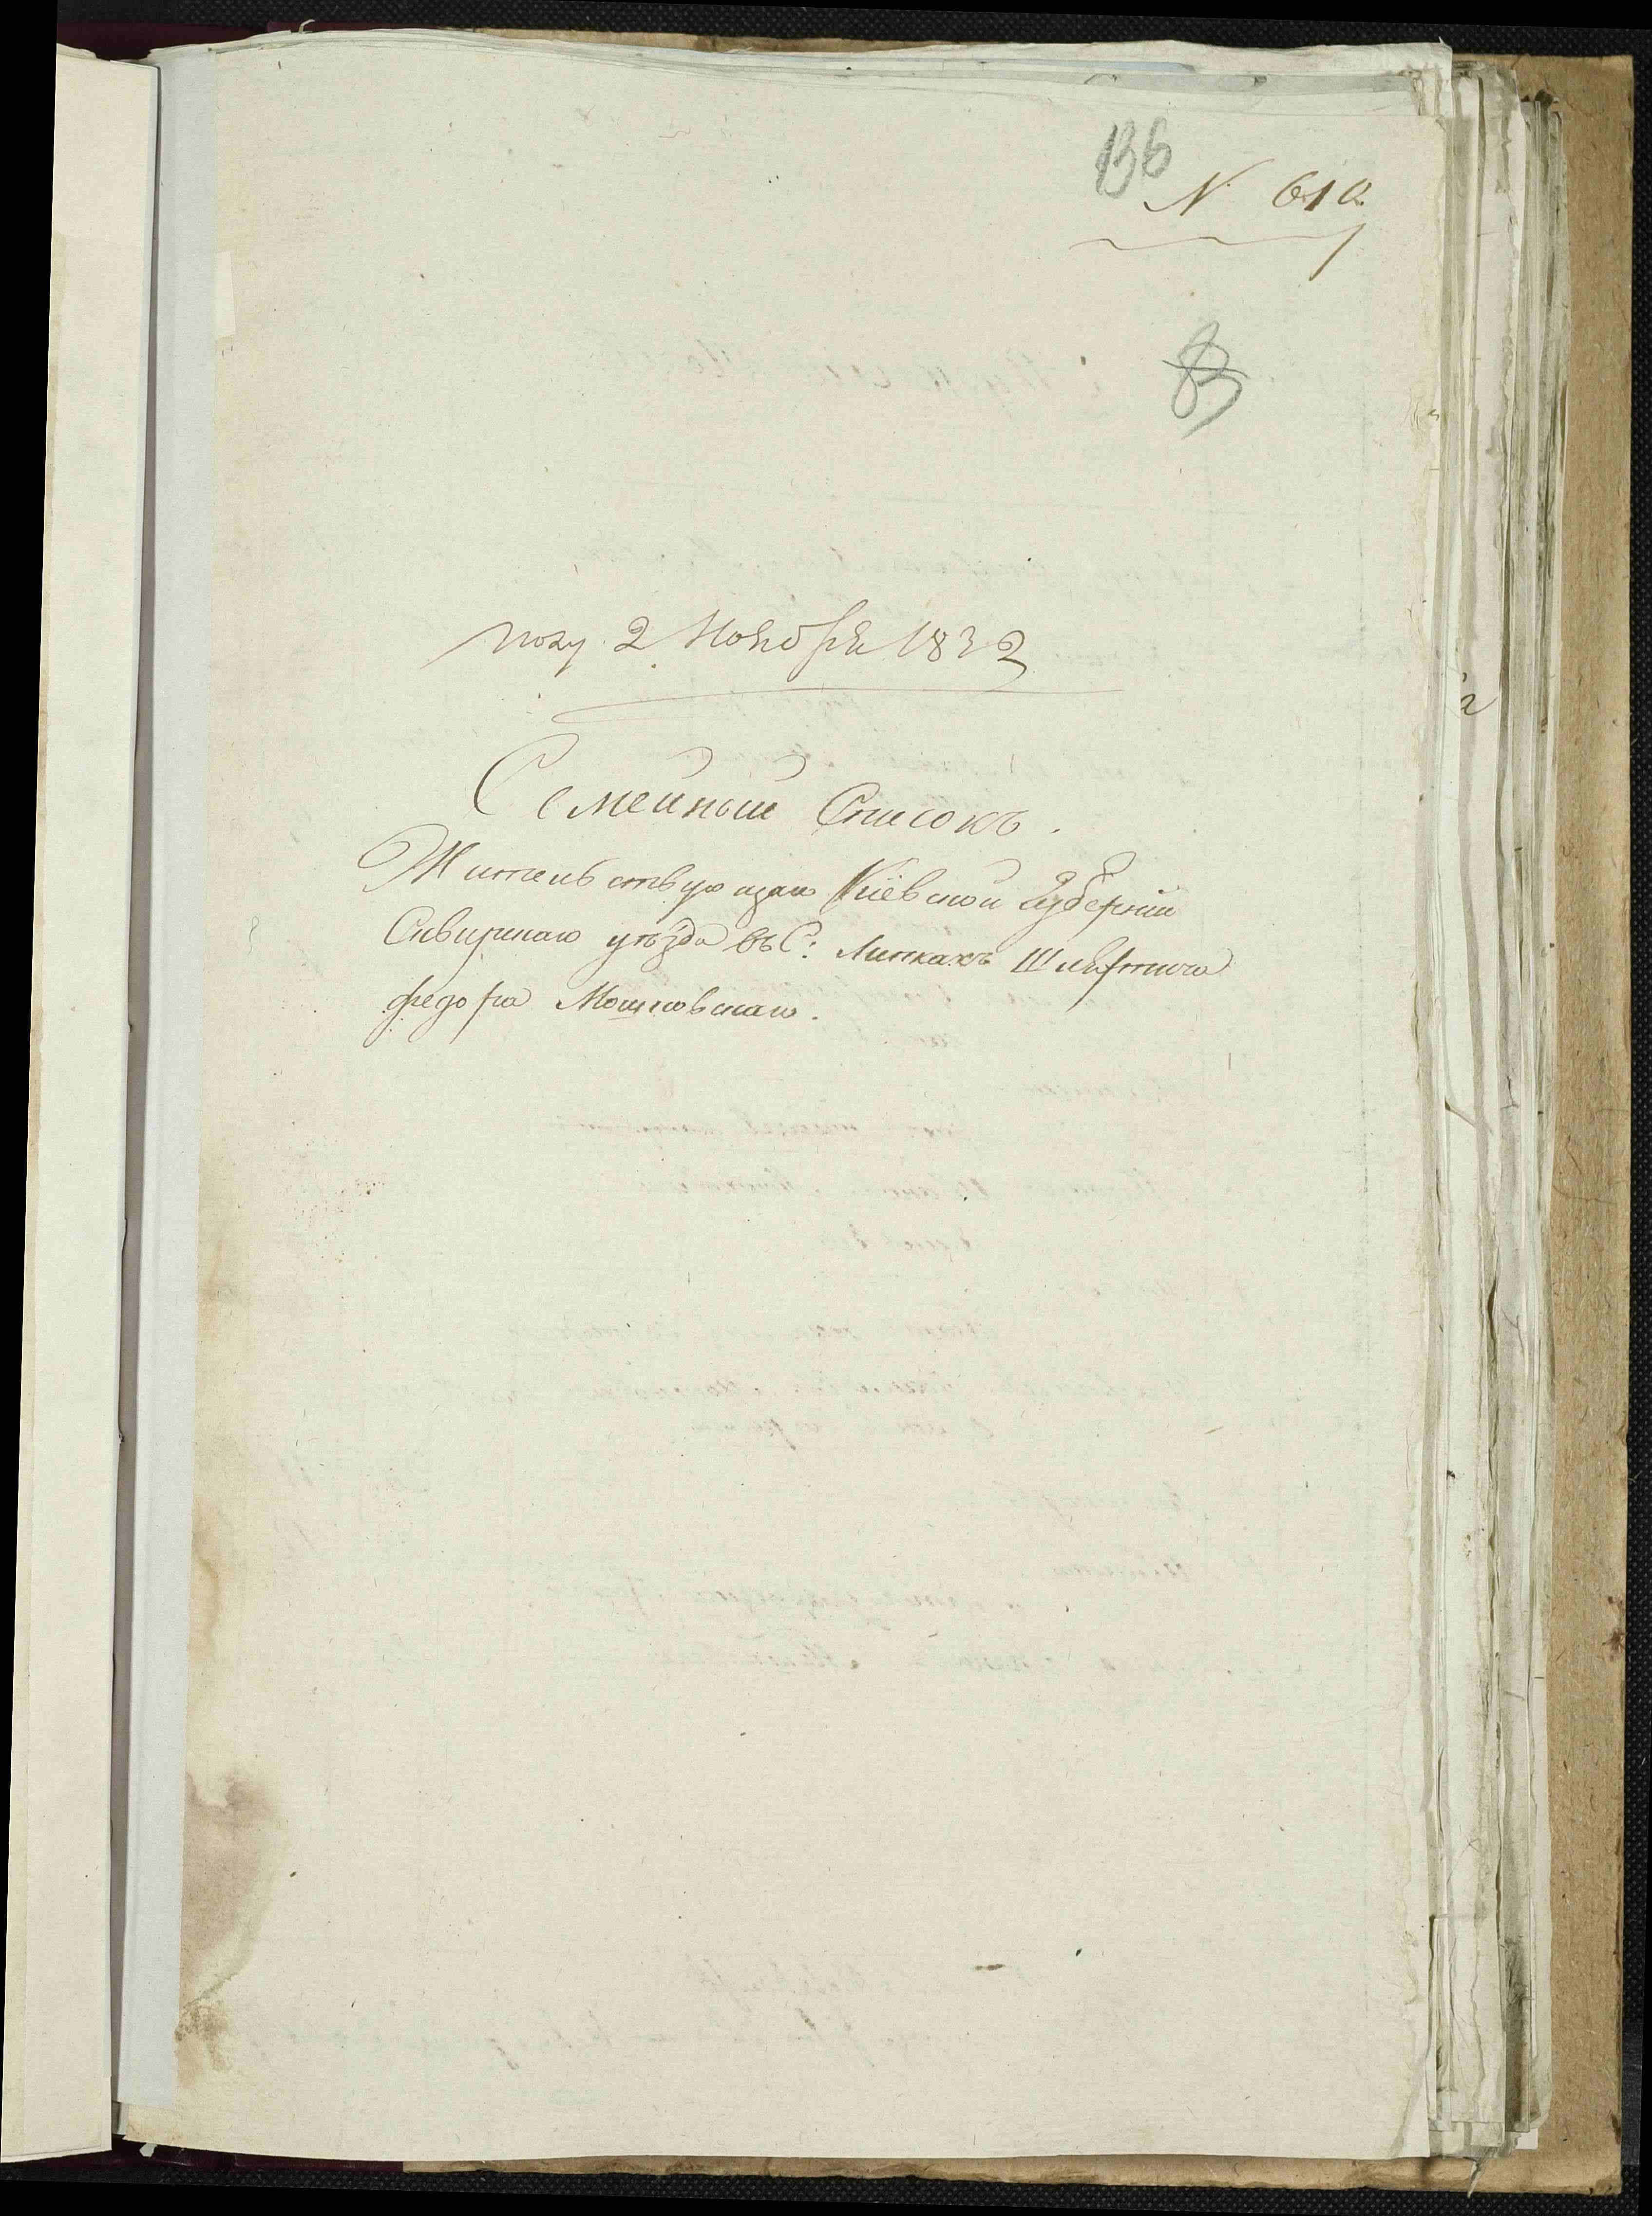 136
N. 610.
83
полу. 2 Ноября 1832
Семейный Списокъ.
Жительствующаго Кіевской Губерніи
Сквирскаго уѣзда въ С: Липкахъ Шляхтича
Федора Мошковскаго.